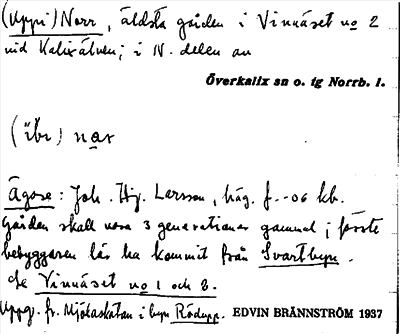 (Uppi) Norr, äldsta gården i Vinnäset no 2
vid Kalixälven; i N. delen av
Överkalix sn o. tg Norrb. l.
(ibr) nor
Ägare: Joh. Hj. Larsson, häg. f. -06 kb.
Gården skall vara 3 generationer gammal; förste
bebyggaren lär ha kommit från Svartbyn.
Se Vinnäset no 1 och 2.
Uppg. fr. Mjölaskatan i byn Rödupp. EDVIN BRÄNNSTRÖM 1937